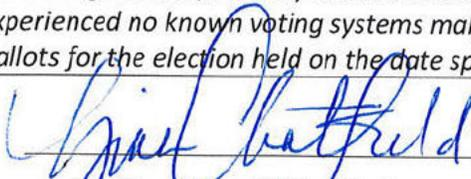 xperienced no known voting systems mal
allots for the election held on the date sp
Chatfield